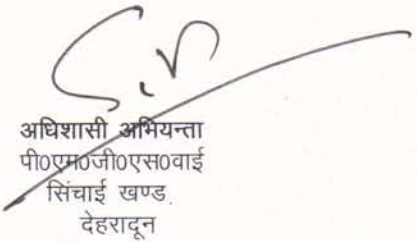 अधिशासी अभियन्ता
पी०एम०जी०एस०वाई
सिंचाई खण्ड
देहरादून